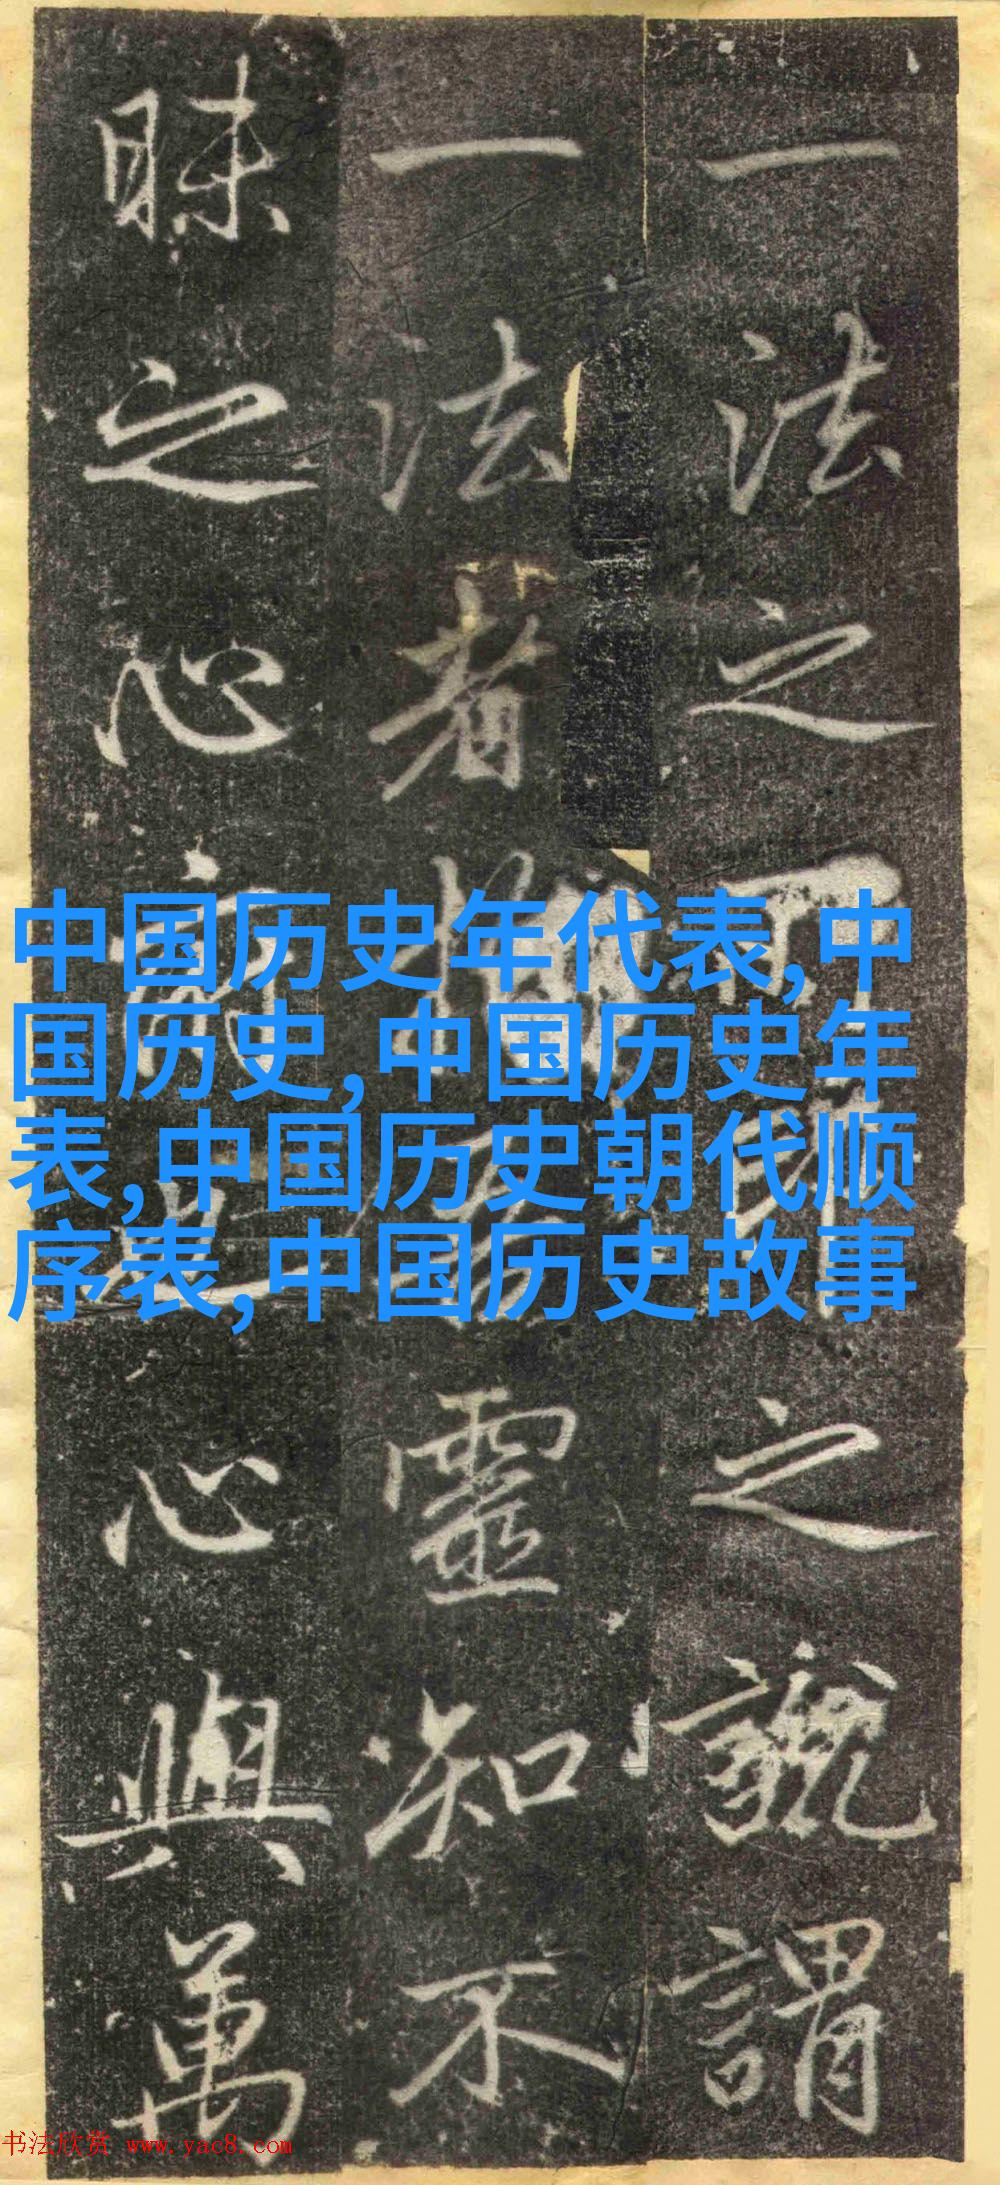 一法之之謂
一法者靈知不
昧之心心與萬
中国历史年代表,中
国历史,中国历史年
表,中国历史朝代顺
序表,中国历史故事
书法欣赏 www.yac8.com